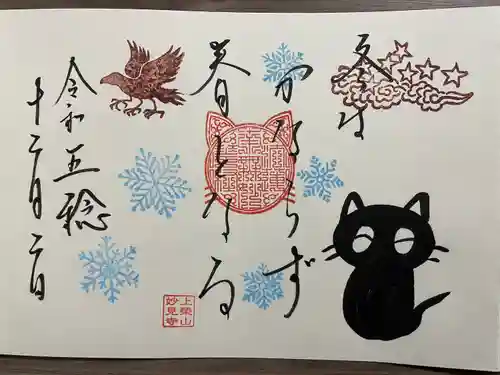 冬は
かならず
春となる
令和五稔
十二月二日
上梁山
妙見寺